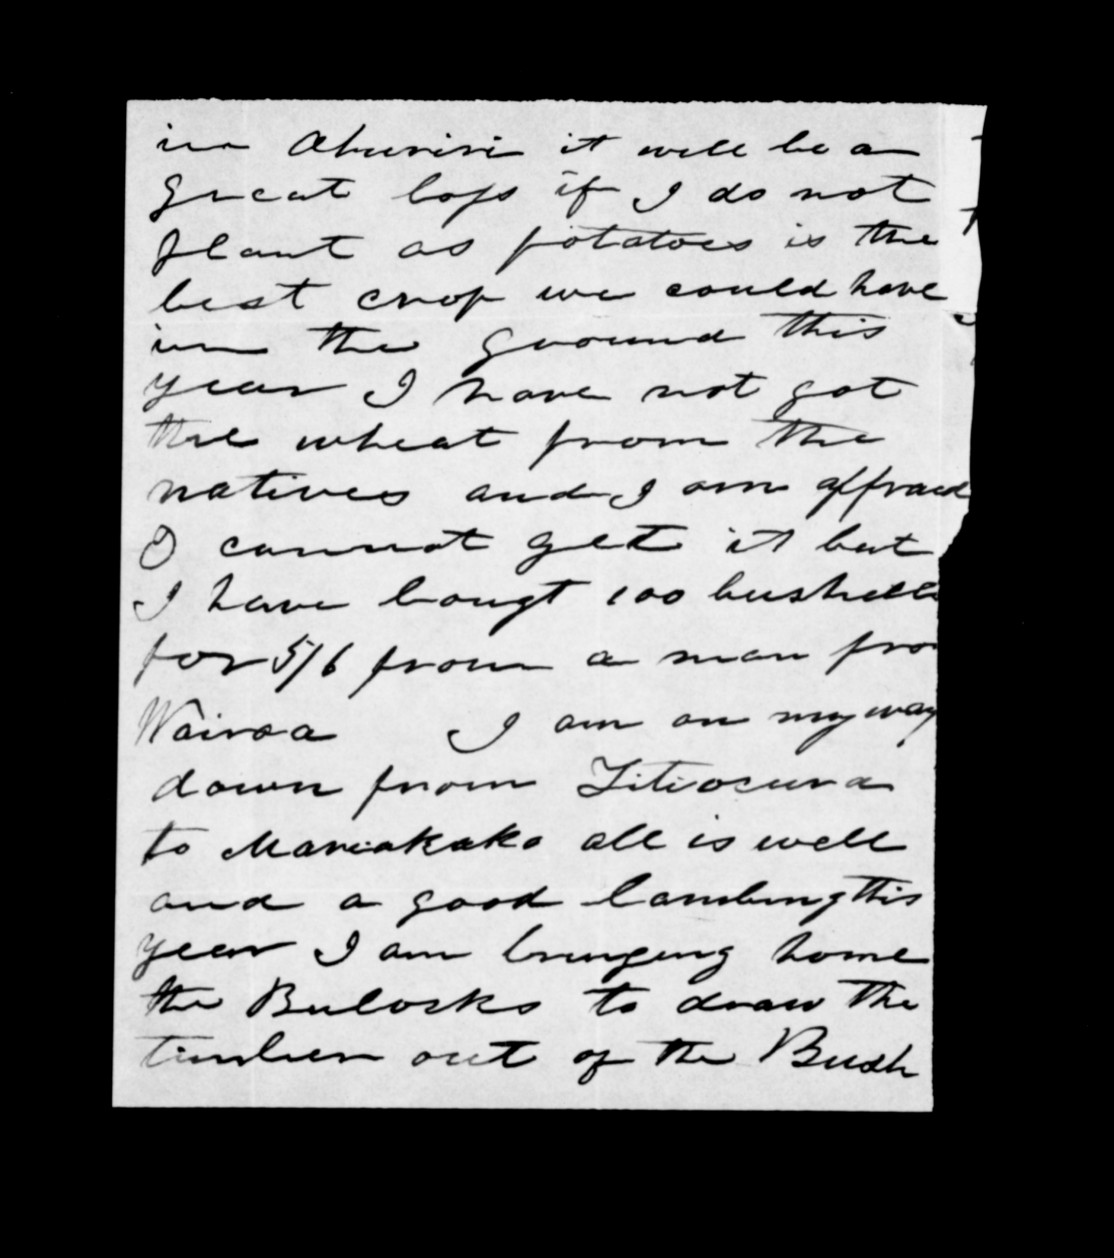 in Ahuriri it will be a
great loss if I do not
plant as potatoes is the
best crop we could have
in the ground this
year I have not got
the wheat from the
natives and I am affraid
I cannot get it but
I have bougt 100 bushells
for 5/6 from a man fro
Wairoa I am on my way
down from Titiocura
to Mareakako all is well
and a good lambing this
year I am bringing home
the Bulocks to draw the
timber out of the Bush